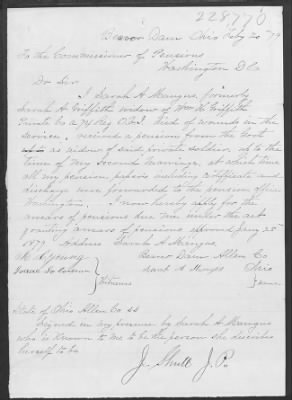 228770
Beaver Dam Ohio Feby 20 '79
To the Commissioner of Pensions
Washington D C
Dr Sir
I Sarah A Mungus, formerly
Sarah A Griffith widow of Wm H Griffith
Private Co A 74 Reg O.V.I. died of wounds in the
service, received a pension from the Govt
as widow of said private soldier, up to the
time of my Second Marriage, at which time
all my pension papers including certificate and
discharge were forwarded to the pension office
Washington. I now hereby apply for the
arrears of pensions due me under the act
granting arrears of pensions approved Jany 25
1879 Address Sarah A Mungus
Beaver Dam Allen Co
Ohio
Young
Witnesses
State of Ohio Allen Co ss
Signed in my presence by Sarah A Mungus
who is known to me to be the person she describes
herself to be
J. Shull J.P.